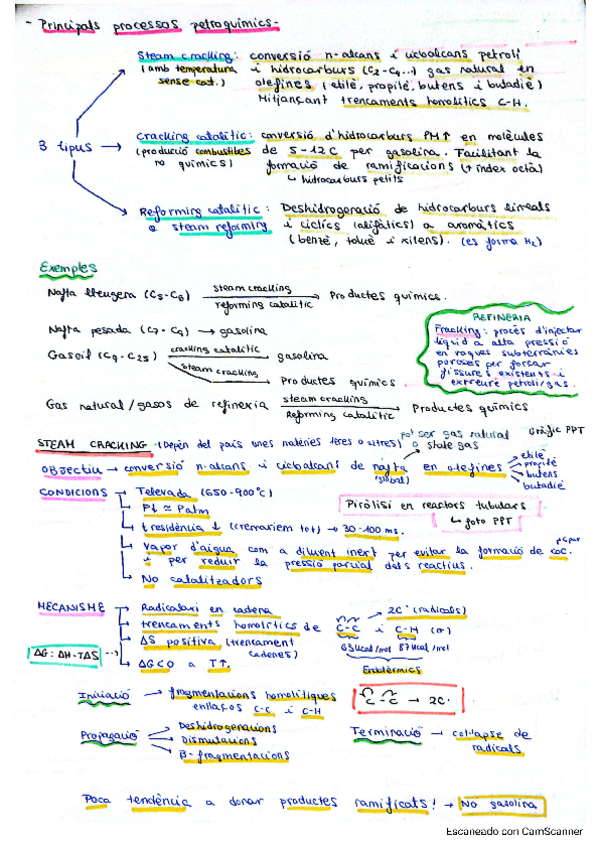 - Principals processos petroquímics -
Steam cracking: conversió n-alcans i cicloalcans petroli
(amb temperatura i hidrocarburs (C2-C4...) gas natural en
sense cat.) olefines (etilè, propilè, butens i butadiè)
Mitjançant trencaments homolítics C-H.
3 tipus
Cracking catalític: conversió d'hidrocarburs PM↑ en molècules
(producció combustibles de 5-12C per gasolina. Facilitant la
no químics) formació de ramificacions (↑ índex octà)
↳ hidrocarburs petits
Reforming catalític: Deshidrogenació de hidrocarburs lineals
o steam reforming i cíclics (alifàtics) a aromàtics
(benzè, toluè i xilens). (es forma H2)
Exemples
Nafta lleugera (C5-C6) steam cracking / reforming catalític → Productes químics.
Nafta pesada (C7-C9) → gasolina
Gasoil (C9-C25) cracking catalític → gasolina
steam cracking → Productes químics
Gas natural/gasos de refineria steam cracking / Reforming catalític → Productes químics
REFINERIA
Fracking: procés d'injectar
líquid a alta pressió
en roques subterrànies
poroses per forçar
fissures existents i
extreure petroli/gas.
STEAM CRACKING (Depèn del país unes matèries teres o altres) pot ser gas natural o shale gas
Gràfic PPT
OBJECTIU → conversió n-alcans i cicloalcans de nafta en olefines
etilè
propilè
butens
butadiè
CONDICIONS → T elevada (650-900°C)
P↓ ≈ Patm
t residència ↓ (cremaríem tot) → 30-100 ms.
Vapor d'aigua com a diluent inert per evitar la formació de coc.
i per reduir la pressió parcial dels reactius.
No catalitzadors
Piròlisi en reactors tubulars
↳ foto PPT
MECANISME → Radicalari en cadena
trencaments homolítics de C-C i C-H (σ) → 2C· (radicals)
83Kcal/mol 87Kcal/mol
Endotèrmics
ΔS positiva (trencament cadenes)
ΔG = ΔH-TΔS
ΔG<0 a T↑.
Iniciació → fragmentacions homolítiques
enllaços C-C i C-H
C-C → 2C·
Propagació → Deshidrogenacions
Dismutacions
β-fragmentacions
Terminació → col·lapse de
radicals
Poca tendència a donar productes ramificats! → No gasolina
Escaneado con CamScanner